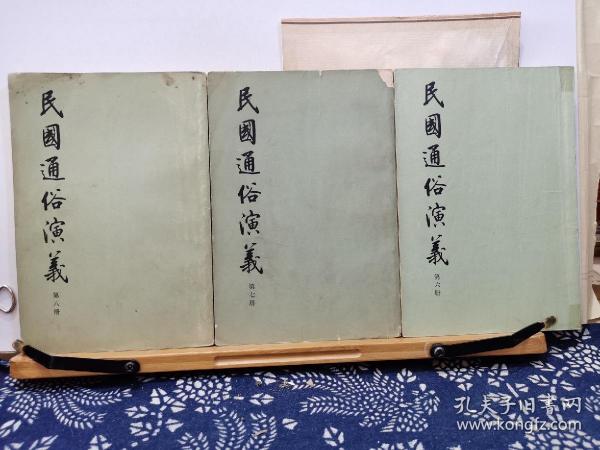 民國通俗演義
第八册
民國通俗演義
第七册
民國通俗演義
第六册
孔夫子旧書网